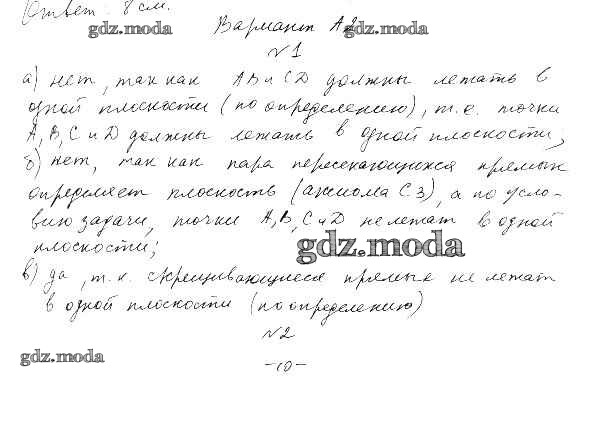 Ответ: 8 см.
gdz.moda
Вариант А2
gdz.moda
№1
а) нет, так как АВ и CD должны лежать в
одной плоскости (по определению), т.е. точки
А, В, С и D должны лежать в одной плоскости;
б) нет, так как пара пересекающихся прямых
определяет плоскость (аксиома С3), а по усло-
вию задачи, точки А, В, С и D не лежат в одной
плоскости;
gdz.moda
в) да, т.к. скрещивающиеся прямые не лежат
в одной плоскости (по определению)
№2
gdz.moda
-10-